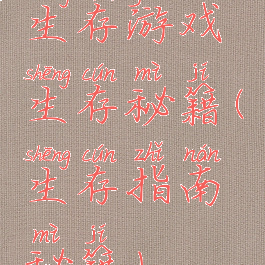 生存游戏
shēng cún mì jí
生存秘籍(
shēng cún zhǐ nán
生存指南
mì jí
秘籍)